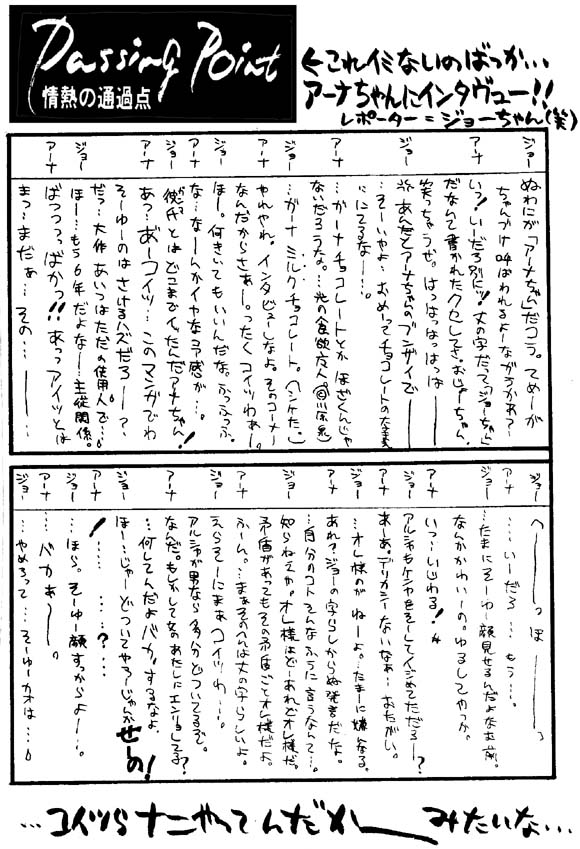 Passing Point
情熱の通過点
←これイミないのばっか…
アーナちゃんにインタヴュー!!
レポーター=ジョーちゃん(笑)
ジョー ぬわにが「アーナちゃん」だコラ。てめーが
ちゃんづけ叫ばわれるよーながらかあ?
アーナ いっ!いーだろ別にッ!丈の字だって「ジョーちゃん」
だなんて書かれたクセしてさ。おじょーちゃん。
笑っちゃうぜ。はっはっはっはっは
ジョー あんだと アーナちゃんのブンザイで
にしてるなー…。
アーナ …ガーナチョコレートとか ほざくんじゃ
ないだろうな。
ジョー …ガーナ ミルクチョコレート。
アーナ やれやれ。インタビューしなよ。そのコーナー
なんだからさあー。ったくコイツわぁー。
ジョー ほー。何きいてもいいんだな。ふふっふふ
アーナ な…なーんかイヤな予感が…。
ジョー 彼氏とはどこまでイったんだアーナちゃん!
アーナ あ?あ"ーコイツ…このマンガでわ
そーゆーのはさけるハズだろー?
だっ…大作 あいつはただの使用人で…。
ジョー ほー…もう6年だよなー…主従関係。
アーナ ばっつっつっばかっ!!あっアイツとは
まっ…まだぁ…その…
ジョー へーーっほーーっ
アーナ …いーだろ…もう…。
ジョー …たまにそーゆー顔見せるんだよなお前。
なんかかわいーの。ゆるしてやっか。
アーナ いっ…いじわる!
ジョー アルシャもケンヤをそーしてイジめてただろー?
アーナ あーあ。デリカシーないなあ。おたがい。
ジョー …オレ様のが ねーよ。…たまーに嫌んなる。
アーナ あれ?ジョーの字らしからぬ発言だな。
…自分のコトそんなふうに言うなんて…。
ジョー 知らねェや。オレ様はどーあれどオレ様だ。
矛盾があってもその矛盾ごとオレ様だよ。
アーナ ふーん。…まぁそのへんは丈の字らしいよ。
ジョー えらそーにまあ コイツわ…。
アルシャが男なら多分どついてるぞ。
アーナ なんだ。もしかして女のあたしにエンリョしてる?
…何してんだよバカ。するなよ。
ジョー ほー…じゃーどついてやろーじゃんか せーの!
アーナ !……?…
ジョー …ほら。そーゆー顔すっからよー…。
アーナ …バカぁー。
ジョー …やめろって…そーゆーカオは…。
…コイツらナニやってんだかー みたいな…